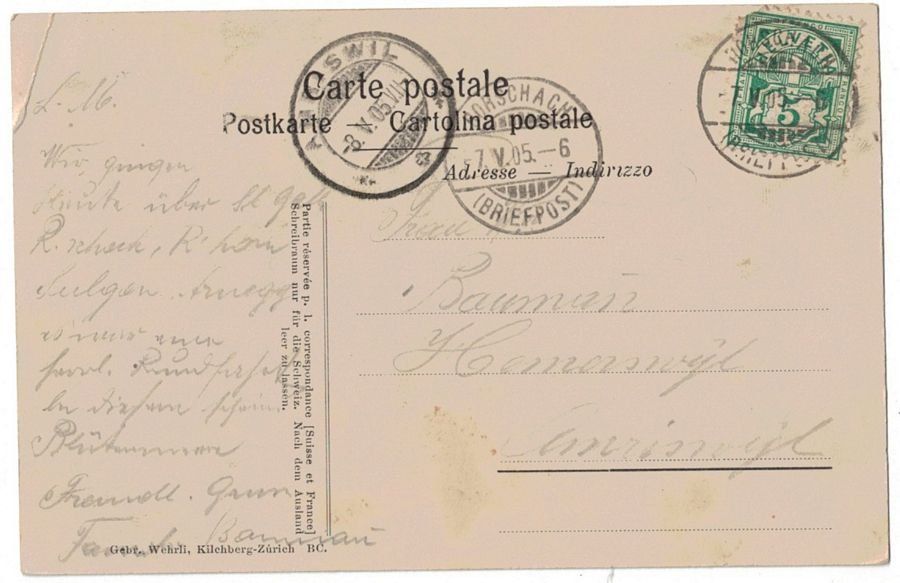 Carte postale
Postkarte Cartolina postale
Adresse — Indirizzo
AMRISWIL
8.V.05
RORSCHACH
7.V.05.–6
(BRIEFPOST)
HELVETIA
5
FRANCO
L. M.
Wir gingen
Heute über St Gall
R. schach, R' horn
Sulgen Arnegg
es war eine
herrl. Rundfahrt
in diesem schön
Blütenmeer
Freundl. Gruss
Bauman
Frau
Bauman
Hemmerswyl
Amriswyl
Partie réservée p. l. correspondance [Suisse et France]
Schreibraum nur für die Schweiz. Nach dem Ausland
leer zu lassen.
Gebr. Wehrli, Kilchberg-Zürich BC.